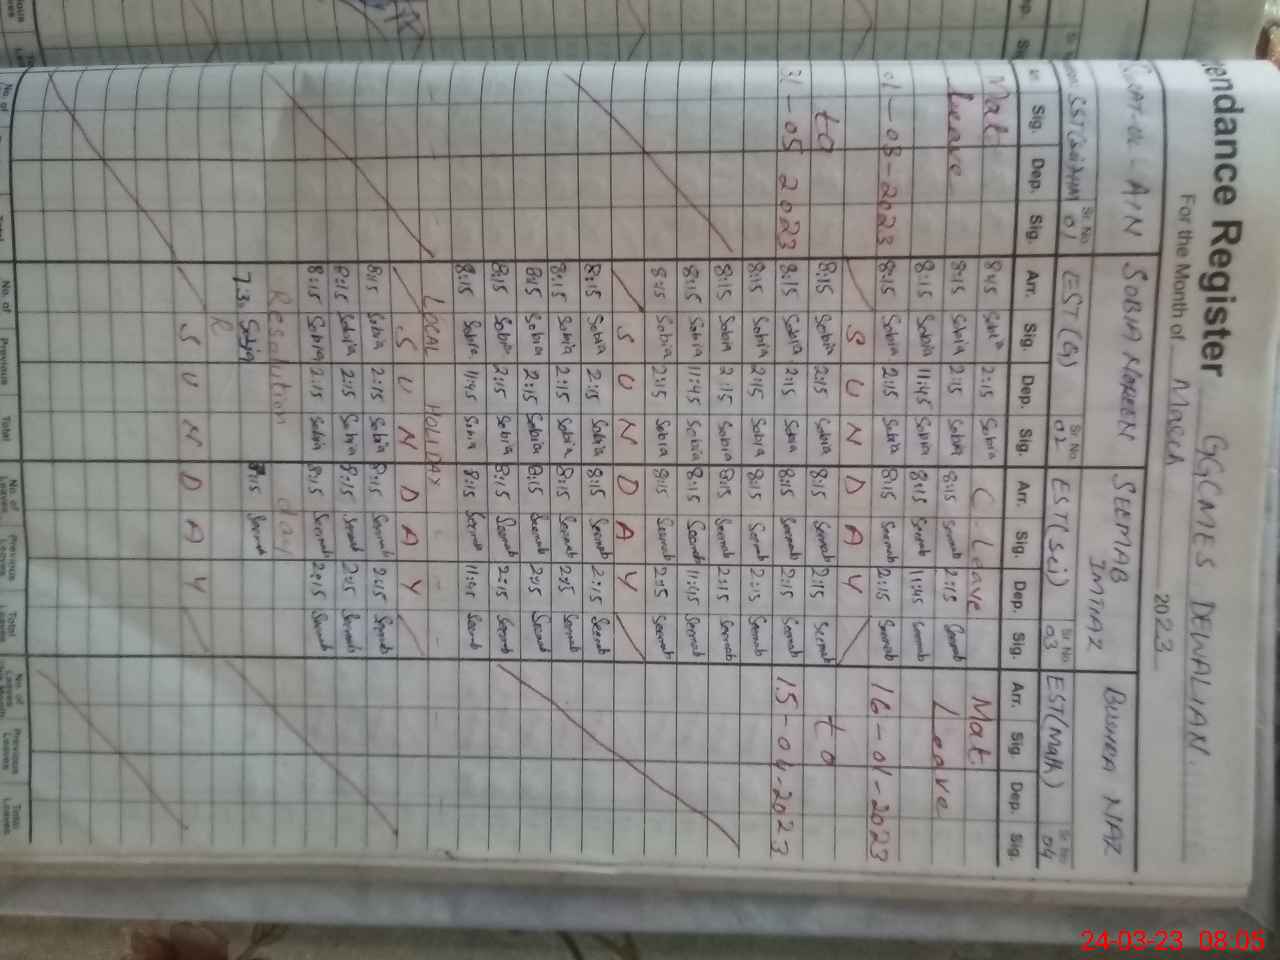 endance Register GGCMES DEWALIAN.
For the Month of March 2023
AIN SOBIA NOREEN SEEMAB IMTIAZ BUSHRA NAZ
Sr. No 01 EST(G) Sr. No 02 EST(Sci) Sr. No 03 EST(Math) Sr. No 04
Sig. Dep. Sig. Arr. Sig. Dep. Sig. Arr. Sig. Dep. Sig. Arr. Sig. Dep. Sig.
Mat 8:15 Sobia 2:15 Sobia C. Leave Mat
Leave 8:15 Sobia 2:15 Sobia 8:15 Seemab 2:15 Seemab Leave
8:15 Sobia 11:45 Sobia 8:15 Seemab 11:45 Seemab
01-03-2023 8:15 Sobia 2:15 Sobia 8:15 Seemab 2:15 Seemab 16-01-2023
S U N D A Y
to 8:15 Sobia 2:15 Sobia 8:15 Seemab 2:15 Seemab to
31-05 2023 8:15 Sobia 2:15 Sobia 8:15 Seemab 2:15 Seemab 15-04-2023
8:15 Sobia 2:15 Sobia 8:15 Seemab 2:15 Seemab
8:15 Sobia 2:15 Sobia 8:15 Seemab 2:15 Seemab
8:15 Sobia 11:45 Sobia 8:15 Seemab 11:45 Seemab
8:15 Sobia 2:15 Sobia 8:15 Seemab 2:15 Seemab
S U N D A Y
8:15 Sobia 2:15 Sobia 8:15 Seemab 2:15 Seemab
8:15 Sobia 2:15 Sobia 8:15 Seemab 2:15 Seemab
8:15 Sobia 2:15 Sobia 8:15 Seemab 2:15 Seemab
8:15 Sobia 2:15 Sobia 8:15 Seemab 2:15 Seemab
8:15 Sobia 11:45 Sobia 8:15 Seemab 11:45 Seemab
LOCAL HOLIDAY
S U N D A Y
8:15 Sobia 2:15 Sobia 8:15 Seemab 2:15 Seemab
8:15 Sobia 2:15 Sobia 8:15 Seemab 2:15 Seemab
8:15 Sobia 2:15 Sobia 8:15 Seemab 2:15 Seemab
Resolution day
7:30 Sobia 8:15 Seemab
R
S U N D A Y
No. of Total No. of Previous Total No. of Leaves Previous Leaves Total Leaves No. of Leaves Previous Leaves Total Leaves
24-03-23 08:05